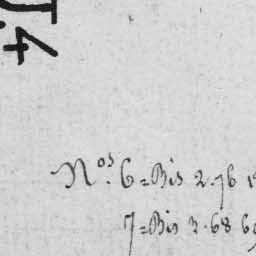 4
Nos. 6 = Bis 2. 76
7 = Bis 3. 68 69